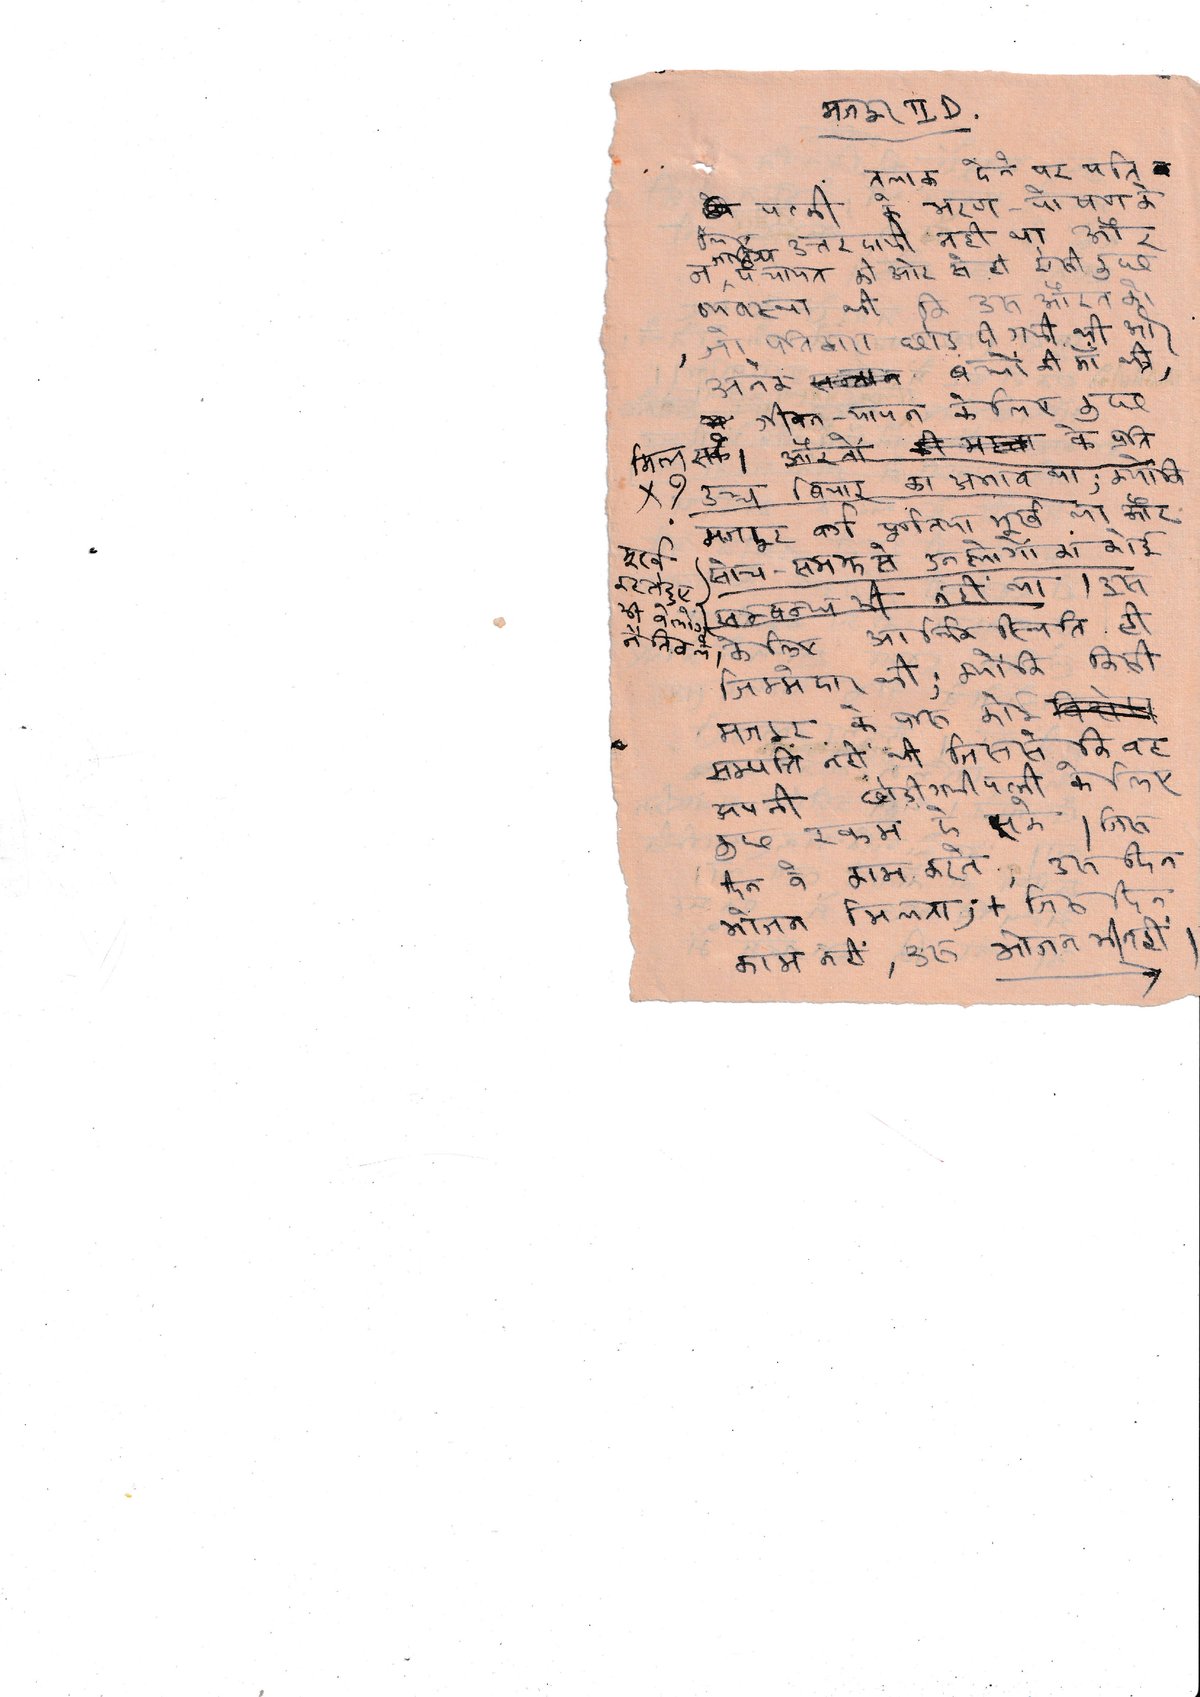 मजदूर II D.
तलाक देने पर पति
पत्नी के भरण-पोषण के
लिए उत्तरदायी नहीं था और
न पंचायत की ओर से ही ऐसी कुछ
व्यवस्था थी कि उस औरत को,
जो पति द्वारा छोड़ दी गयी थी और
अनेक बच्चों की माँ थी,
जीवन-यापन के लिए कुछ
मिल सके। औरतों के प्रति
X? उच्च विचार का अभाव था; क्योंकि
मजदूर वर्ग मूर्ख था और
सोच-समझ से उनलोगों का कोई
सम्बन्ध भी नहीं था। इस
के लिए आर्थिक स्थिति ही
जिम्मेदार थी; क्योंकि किसी
मजदूर के पास कोई
सम्पत्ति नहीं थी जिससे कि वह
अपनी छोड़ी गयी पत्नी के लिए
कुछ रकम दे सके। जिस
दिन वे काम करते, उस दिन
भोजन मिलता; + जिस दिन
काम नहीं, उस भोजन भी नहीं।
मूर्ख
रहते हुए
भी वे लोग